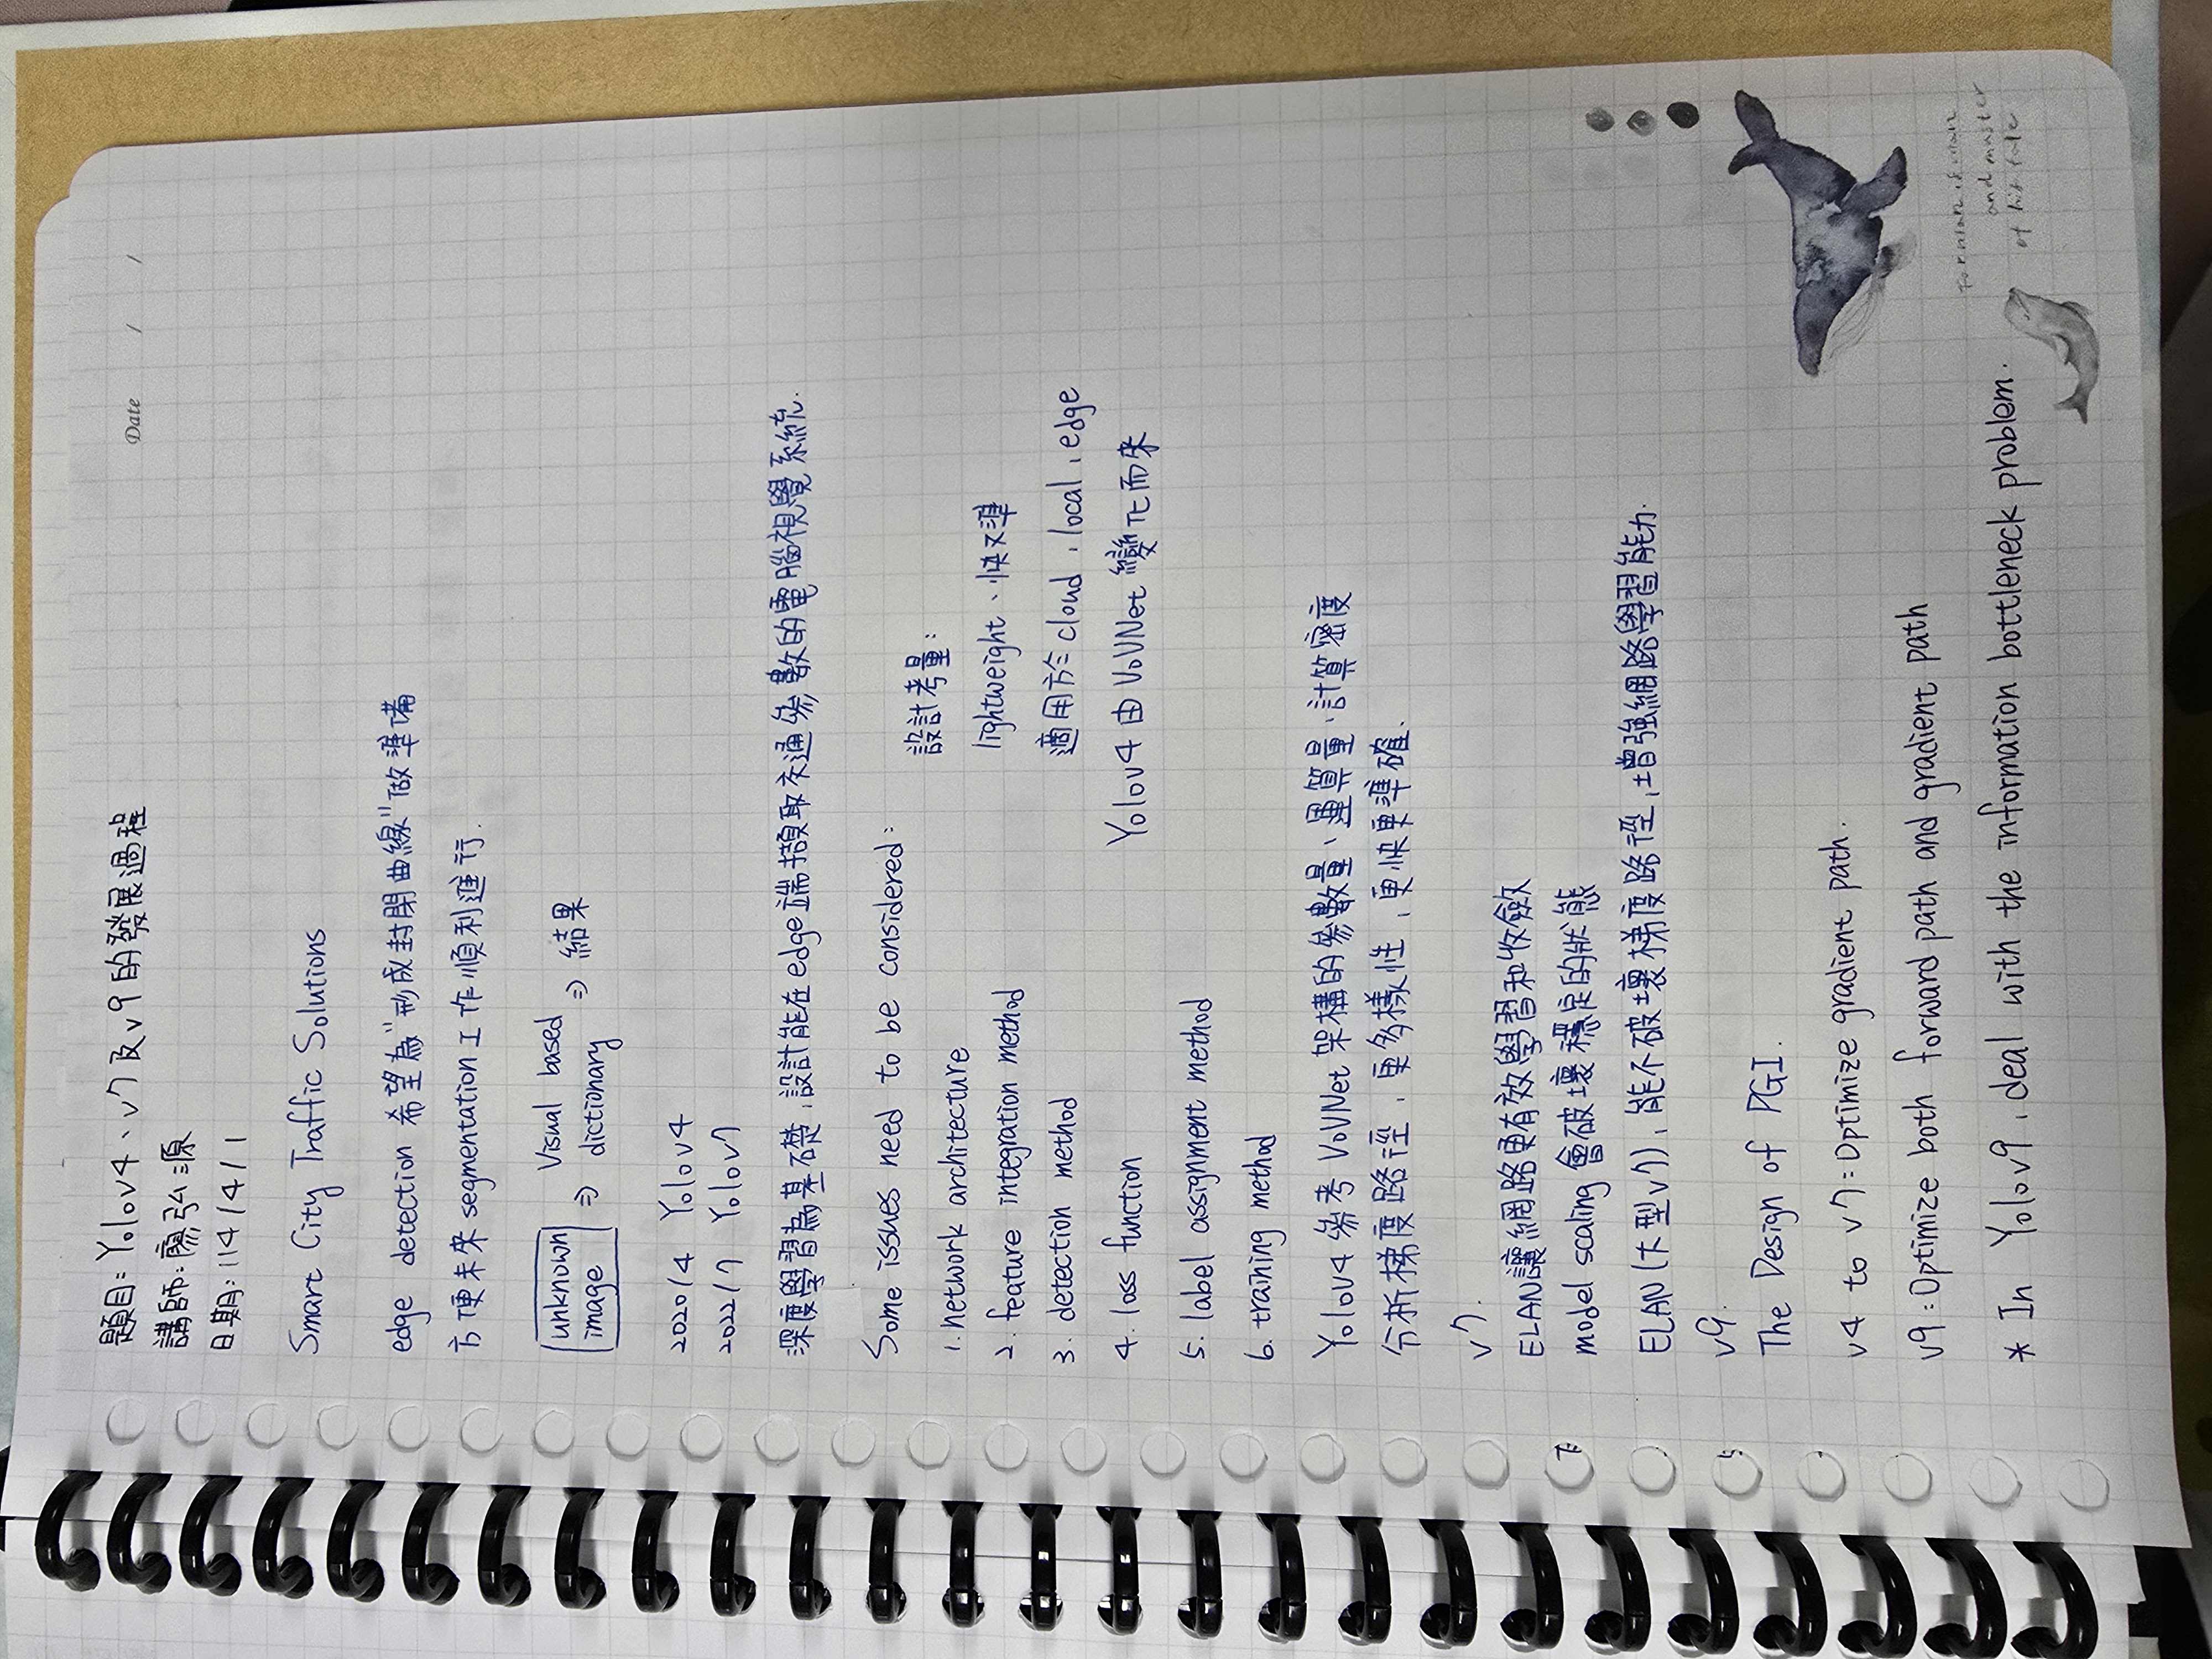 Date / /
題目:Yolov4、v7及v9的發展過程
講師:廖弘源
日期:114/4/1
Smart City Traffic Solutions
edge detection 希望為"形成封閉曲線"做準備
方便未來segmentation工作順利進行.
unknown image ⇒ Visual based dictionary ⇒ 結果
2020/4 Yolov4
2022/7 Yolov7
深度學習為基礎,設計能在edge端擷取交通參數的電腦視覺系統.
Some issues need to be considered:
1. network architecture
2. feature integration method
3. detection method
4. loss function
5. label assignment method
6. training method
設計考量:
lightweight、快又準
適用於cloud,local,edge
Yolov4由VoVNet變化而來
Yolov4參考VoVNet架構的參數量、運算量、計算密度
分析梯度路徑,更多樣性,更快更準確.
v7.
ELAN讓網路更有效學習和收斂
model scaling會破壞穩定的狀態
ELAN(大型v7),能不破壞梯度路徑,增強網路學習能力.
v9.
The Design of PGI.
v4 to v7:Optimize gradient path.
v9:Optimize both forward path and gradient path
* In Yolov9,deal with the information bottleneck problem.
and master
of his